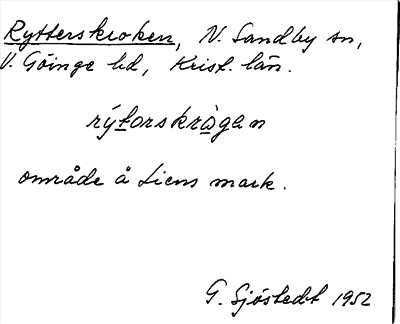 Rytterskroken, N. Sandby sn,
V. Göinge hd, Krist. län.
rýtorskrògan
område å Liens mark.
G. Sjöstedt 1952